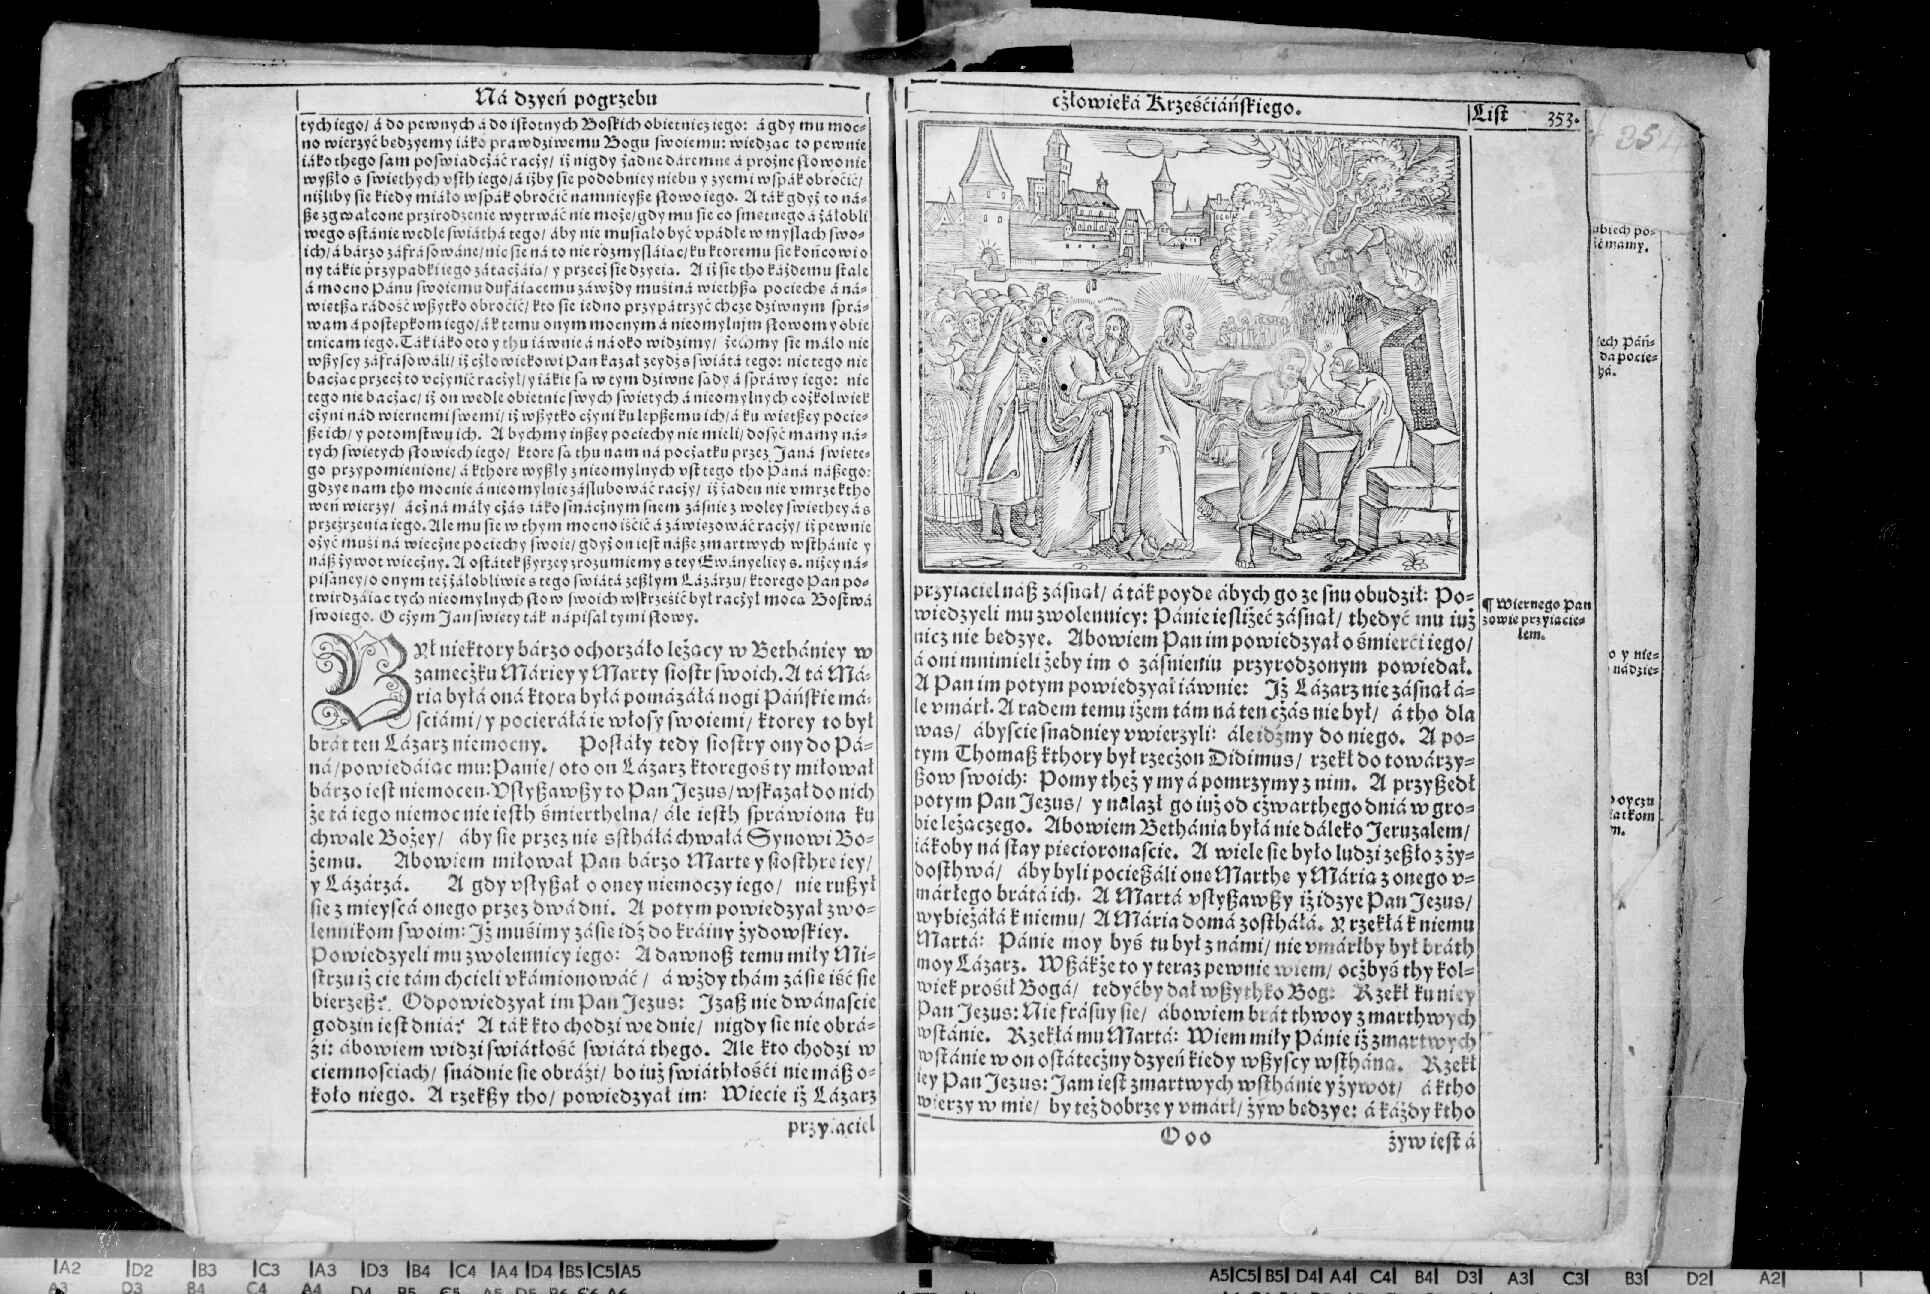 Ná dzyeń pogrzebu
tych iego/ á do pewnych á do istotnych Boskich obietnicz iego: á gdy mu moc-
no wierzyć bedzyemy iáko prawdziwemu Bogu swoiemu: wiedząc to pewnie
iáko thego sam poświadcżáć racży/ iż nigdy żadne dáremne á prożne słowo nie
wyßło s swiethych vsth iego/ á iżby sie podobniey niebu y zyemi wspák obroćić/
niżliby sie kiedy miáło wspák obroćić namnieyße słowo iego. A ták gdyż to ná-
ße zgwałcone przirodzenie wytrwáć nie może/ gdy mu sie co smętnego á żáłobli
wego sstánie wedle świáthá tego/ áby nie musiáło być vpádłe w myslach swo-
ich/ á bárzo záfrásowáne/ nic sie ná to nie rozmysláiąc/ ku ktoremu sie końcowi o
ny tákie przypadki iego zátacżáią/ y przecż sie dzyeią. A iż sie tho káżdemu stále
á mocno Pánu swoiemu dufáiącemu záwżdy muśi ná wiethßą pociechę á ná-
wietßą rádość wßytko obroćić/ kto sie iedno przypátrzyć chcze dziwnym sprá-
wam á postępkom iego/ á k temu onym mocnym á nieomylnym słowom y obie
tnicam iego. Ták iáko oto y thu iáwnie á ná oko widzimy/ żechmy sie máło nie
wßyscy záfrásowáli/ iż cżłowiekowi Pan kazał zeydź s świátá tego: nic tego nie
bacżąc przecż to vcżynić racżył/ y iákie są w tym dziwne sądy á spráwy iego: nic
tego nie bacżąc/ iż on wedle obietnic swych świętych á nieomylnych cożkolwiek
cżyni nád wiernemi swemi/ iż wßytko cżyni ku lepßemu ich/ á ku wietßey pocie-
ße ich/ y potomstwu ich. A bychmy inßey pociechy nie mieli/ dosyć mamy ná-
tych świętych słowiech iego/ ktore są thu nam ná pocżątku przez Janá święte-
go przypomienione/ á kthore wyßły z nieomylnych vst tego tho Páná náßego:
gdzye nam tho mocnie á nieomylnie záślubowáć racży/ iż żaden nie vmrze ktho
weń wierzy/ ácż ná máły cżás iáko smácżnym snem záśnie z woley świethey á s
przeźrzenia iego. Ale mu sie w thym mocno iśćić á záwięzowáć racży/ iż pewnie
ożyć muśi ná wiecżne pociechy swoie/ gdyż on iest náße zmartwych wsthánie y
náß żywot wiecżny. A ostátek ßyrzey zrozumiemy s tey Ewányeliey s. niżey ná-
pisáney/ o onym też żáłobliwie s tego świátá zeßłym Lázárzu/ ktorego Pan po-
twirdzáiąc tych nieomylnych słow swoich wskrześić był racżył mocą Bostwá
swoiego. O cżym Jan święty ták nápisał tymi słowy.
BYł niektory bárzo ochorzáło leżący w Bethániey w
zamecżku Máriey y Marty siostr swoich. A tá Má-
ria byłá oná ktora byłá pomázáłá nogi Páńskie má-
śćiámi/ y pocieráłá ie włosy swoiemi/ ktorey to był
brát ten Lázarz niemocny. Posłáły tedy siostry ony do Pá-
ná/ powiedáiąc mu: Pánie/ oto on Lázarz ktoregoś ty miłował
bárzo iest niemocen. Vsłyßawßy to Pan Jezus/ wskazał do nich
że tá iego niemoc nie iesth śmierthelna/ ále iesth spráwiona ku
chwale Bożey/ áby sie przez nie sstháłá chwałá Synowi Bo-
żemu. Abowiem miłował Pan bárzo Martę y siosthrę iey/
y Lázárzá. A gdy vsłyßał o oney niemoczy iego/ nie rußył
się z mieyscá onego przez dwá dni. A potym powiedzyał zwo-
lennikom swoim: Iż musimy zásię idź do kráiny żydowskiey.
Powiedzyeli mu zwolennicy iego: A dawnoß temu miły Mi-
strzu iż cię tám chcieli vkámionowáć/ á wżdy thám zásię iść sie
bierzeß? Odpowiedzyał im Pan Jezus: Izaß nie dwánaście
godzin iest dniá? A ták kto chodzi we dnie/ nigdy sie nie obrá-
źi: ábowiem widzi świátłość świátá thego. Ale kto chodzi w
ciemnosciach/ snádnie sie obráźi/ bo iuż świáthłośći nie máß o-
koło niego. A rzekßy tho/ powiedzyał im: Wiecie iż Lázarz
przyiaciel
cżłowieká Krześćiáńskiego.
List 353.
przyiaciel náß zásnął/ á ták poydę ábych go ze snu obudził: Po-
wiedzyeli mu zwolennicy: Pánie iesliżeć zásnął/ thedyć mu iuż
nicz nie bedzye. Abowiem Pan im powiedzyał o śmierći iego/
á oni mnimieli żeby im o záśnieniu przyrodzonym powiedał.
A Pan im potym powiedzyał iáwnie: Iż Lázarz nie zásnął á-
le vmárł. A radem temu iżem tám ná ten cżás nie był/ á tho dla
was/ ábyscie snadniey vwierzyli: ále idźmy do niego. A po-
tym Thomaß kthory był rzecżon Didimus/ rzekł do towárzy-
ßow swoich: Pomy theż y my á pomrzymy z nim. A przyßedł
potym Pan Jezus/ y nalazł go iuż od cżwarthego dniá w gro-
bie leżączego. Abowiem Bethánia byłá nie dáleko Jeruzalem/
iákoby ná stay pięcioronaście. A wiele sie było ludzi zeßło z ży-
dosthwá/ áby byli pocießáli onę Marthę y Márią z onego v-
márłego brátá ich. A Martá vsłyßawßy iż idzye Pan Jezus/
wybieżáłá k niemu/ A Mária domá zostháłá. Y rzekłá k niemu
Martá: Pánie moy byś tu był z námi/ nie vmárłby był bráth
moy Lázarz. Wßákże to y teraz pewnie wiem/ ocżbyś thy kol-
wiek prośił Bogá/ tedyćby dał wßythko Bog: Rzekł ku niey
Pan Jezus: Nie frásuy sie/ ábowiem brát thwoy zmarthwych
wstánie. Rzekłá mu Martá: Wiem miły Pánie iż zmartwych
wstánie w on ostátecżny dzyeń kiedy wßyscy wstháną. Rzekł
iey Pan Jezus: Jam iest zmartwych wsthánie y żywot/ á ktho
wierzy w mię/ by też dobrze y vmárł/ żyw bedzye: á káżdy ktho
Ooo
żyw iest á
¶ Wiernego Pan
zowie przyiacie-
lem.
mamy.
Páń-
da pocie-
y nie-
nádzie-
A2 D2 B3 C3 A3 D3 B4 C4 A4 D4 B5 C5 A5
A5 C5 B5 D4 A4 C4 B4 D3 A3 C3 B3 D2 A2